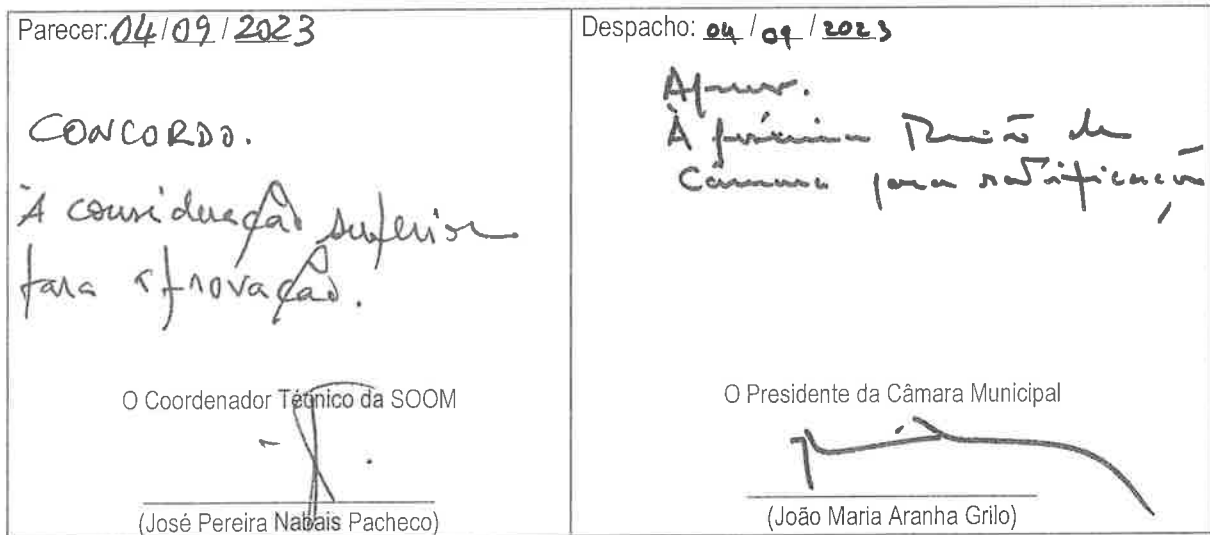 Parecer: 04/09/2023
CONCORDO.
À consideração superior
para aprovação.
O Coordenador Técnico da SOOM
(José Pereira Nabais Pacheco)
Despacho: 04/09/2023
Aprovo.
À próxima Reunião de
Câmara para ratificação
O Presidente da Câmara Municipal
(João Maria Aranha Grilo)